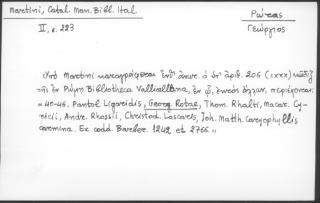 Martini, Catal. Man. Bibl. Ital
II, σ. 223
Ρώτας
Γεώργιος
Ὑπὸ Martini καταγράφεται ὁ ὑπ' ἀριθ. 206 (CXXX)
τῆς ἐν Ρώμῃ Bibliotheca Vallicelliana, ἐν ᾧ, ἐκτὸς ἄλλων, περιέχονται:
« 40-46. Pantol Ligaridis, Georg Rotae, Thom. Rhalti, Macar. Cy-
ricii, Andr. Rhossii, Christod. Lascaris, Joh. Matth. Caryophyllis
carmina. Ex codd. Barber. 1242 et 2766.»